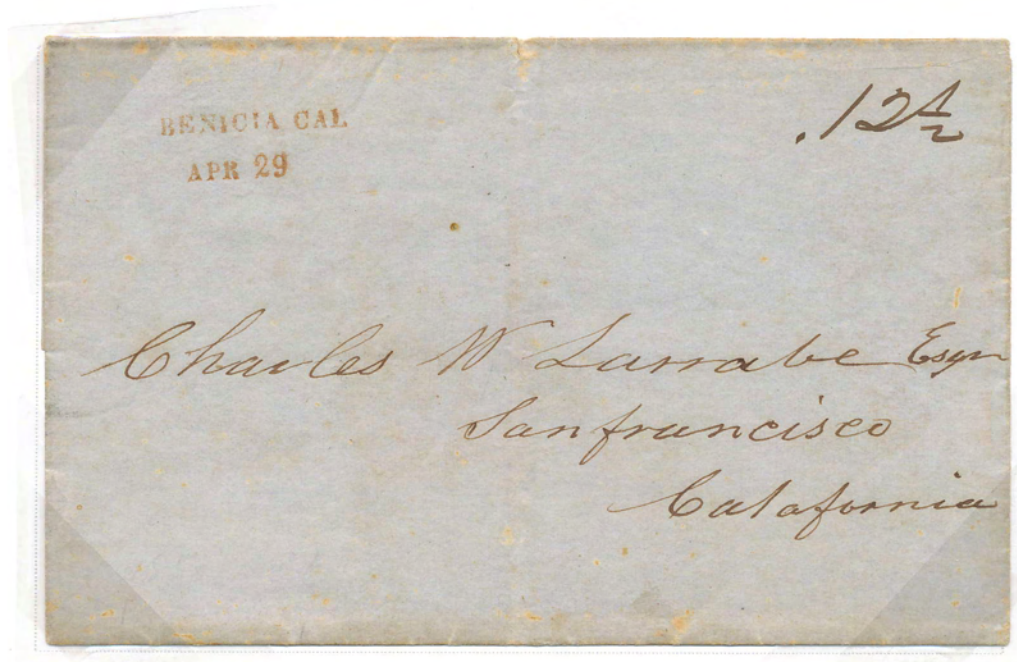 BENICIA CAL
APR 29
.12 1/2
Charles W Larrabe Esqr
Sanfrancisco
Calafornia